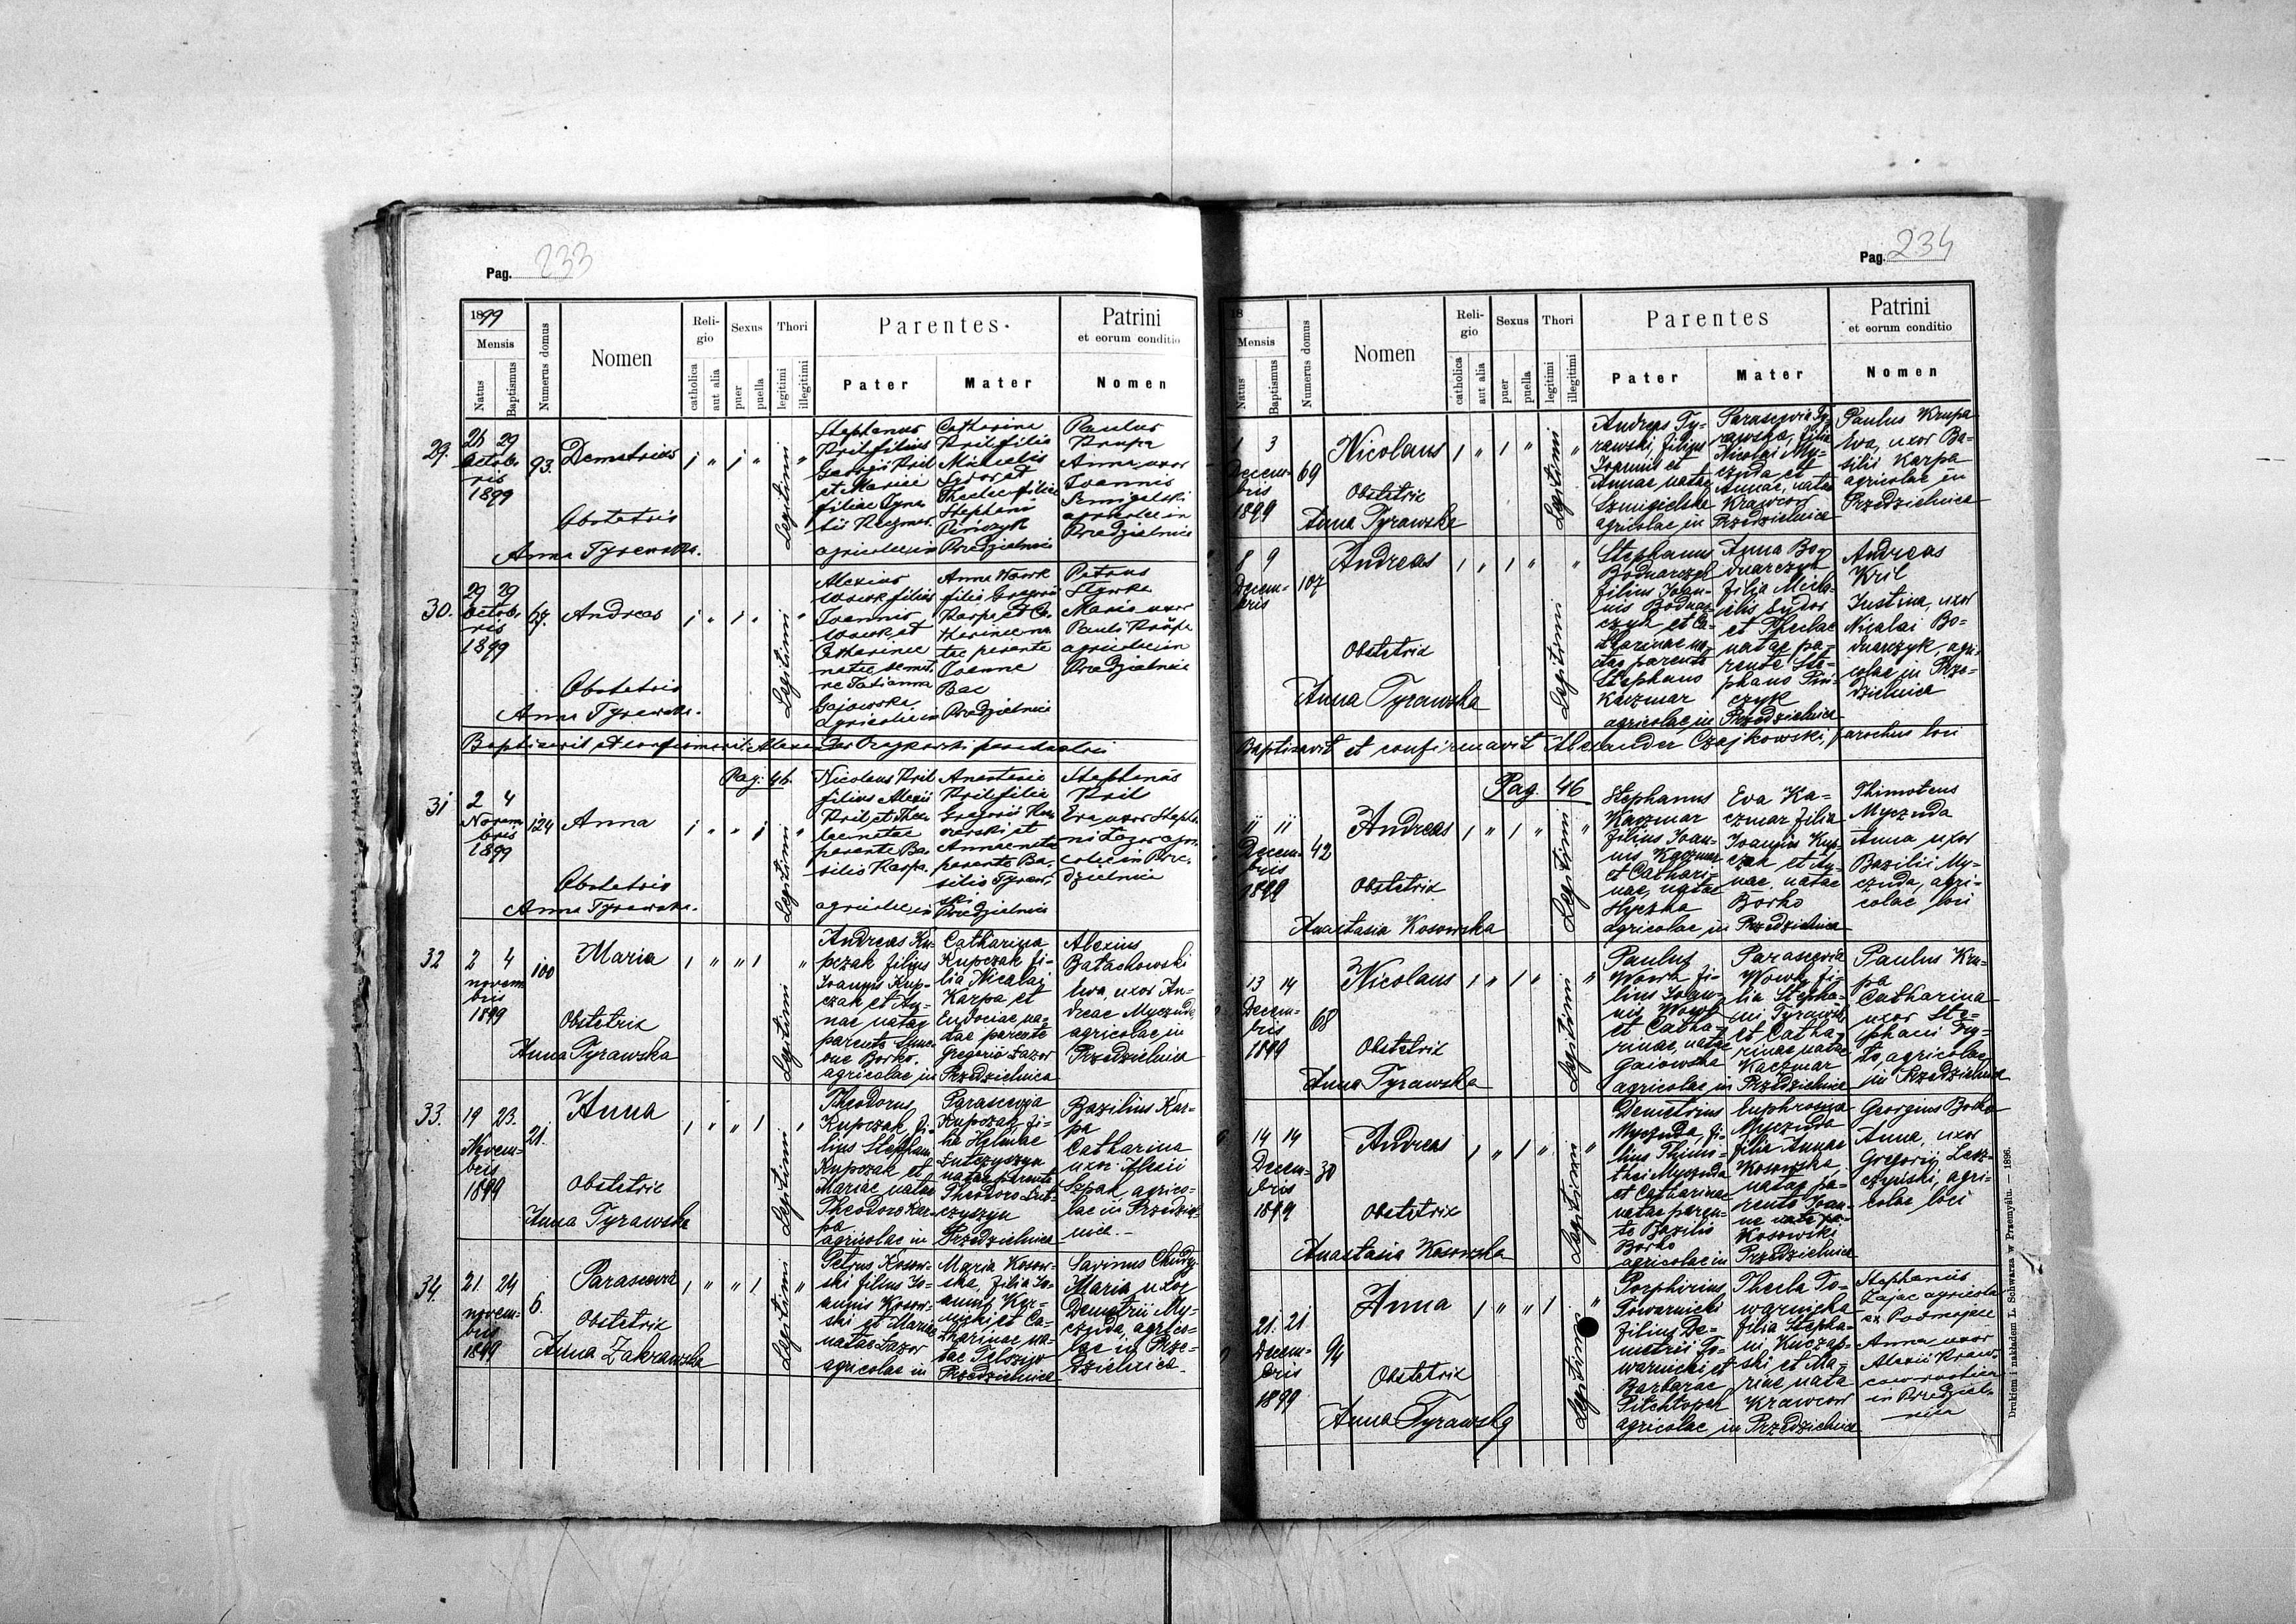 Pag. 233
1899
Mensis
Natus
Baptismus
Numerus domus
Nomen
Religio
catholica
aut alia
Sexus
puer
puella
Thori
legitimi
illegitimi
Parentes
Pater
Mater
Patrini
et eorum conditio
Nomen
29.
26 29
Octob-
ris
1899
93.
Demetrius
Obstetrix
Anna Tyrawska.
Legitimi
Stephanus
Kril filius
Georgii Kril
et Mariae
filiae
agricolae in
Catharina
Kril filia
Michaelis
Sydor et
Theclae filiae
Stephani
Pińczyk
Przedzielnica
Paulus
Krupa
Anna uxor
Joannis
Szmigelski
agricolae in
Przedzielnica
30.
29 29
Octob-
ris
1899
67.
Andreas
Obstetrix
Anna Tyrawska.
Legitimi
Alexius
Wowk filius
Joannis
Wowk et
Catharinae
natae
Tatianna
Gajowska
agricolae in
Anna Wowk
filia Gregorii
Karpa et Ca-
tharinae na-
tae parente
Joanne
Bac
Przedzielnica
Petrus
Hywka
Maria uxor
Pauli Krupa
agricolae in
Przedzielnica
Baptisavit et confirmavit Alexander Czajkowski parochus loci
Pag. 46.
31
2 4
Novem-
bris
1899
124
Anna
Obstetrix
Anna Tyrawska.
Legitimi
Nicolaus Kril
filius Alexii
Kril et Thec-
lae natae
parente Ba-
silio Karpa.
agricolae in
Anastasia
Kril filia
Gregorii
et
Annae natae
parente Ba-
silio Tyraw-
ski
Przedzielnica
Stephanus
Kril
Eva uxor Stepha-
ni Lazor agri-
colae in Prze-
dzielnica
32
2 4
novem-
bris
1899
100
Maria
Obstetrix
Anna Tyrawska
Legitimi
Andreas Ku-
pczak filius
Joannis Kup-
czak et An-
nae natae
parente Sime-
one Borko.
agricolae in
Catharina
Kupczak fi-
lia Nicolai
Karpa et
Eudociae na-
tae parente
Gregorio Lazor
Przedzielnica
Alexius
Bałachowski
Ewa, uxor An-
dreae Myczuda,
agricolae in
Przedzielnica
33.
19 23.
Novem-
bris
1899
21.
Anna
Obstetrix
Anna Tyrawska
Legitimi
Theodorus
Kupczak fi-
lius Stephani
Kupczak et
Mariae natae
Theodoro Kar-
pa
agricolae in
Parascevia
Kupczak fi-
lia
Lutczyszyn
natae parente
Theodoro Lut-
czyszyn
Przedzielnica
Bazilius Kar-
pa
Catharina
uxor Alexii
Szpak, agrico-
lae in Przedziel-
nica.
34.
21. 24
novem-
bris
1899
6.
Parascevia
Obstetrix
Anna Zakrawska
Legitimi
Petrus Kosow-
ski filius Jo-
annis Kosow-
ski et Mariae
natae Lazor
agricolae in
Maria Kosow-
ska, filia Jo-
annis Kar-
et Ca-
tharinae na-
tae
Przedzielnica
Savinus
Maria uxor
Demetrii My-
czuda, agrico-
lae in Prze-
dzielnica.
Pag. 234
18
Mensis
Natus
Baptismus
Numerus domus
Nomen
Religio
catholica
aut alia
Sexus
puer
puella
Thori
legitimi
illegitimi
Parentes
Pater
Mater
Patrini
et eorum conditio
Nomen
1 3
Decem-
bris
1899
69
Nicolaus
Obstetrix
Anna Tyrawska
Legitimi
Andreas Ty-
rawski, filius
Joannis et
Annae natae
Szmigielska
agricolae in
Parascevia Ty-
rawska, filia
Nicolai My-
czuda et
Annae, natae
Krawców
Przedzielnica
Paulus Krupa
Eva, uxor Ba-
silii Karpa
agricolae in
Przedzielnica
8 9
Decem-
bris
107
Andreas
Obstetrix
Anna Tyrawska
Legitimi
Stephanus
Bodnarczyk
filius Joan-
nis Bodnar-
czyk et Ca-
tharinae na-
tae parente
Stephano
Kaczmar
agricolae in
Anna Bo-
dnarczyk
filia Micha-
elis Sydor
et Theclae
natae pa-
rente Ste-
phano Piń-
czyk
Przedzielnica
Andreas
Kril
Justina, uxor
Nicolai Bo-
dnarczyk, agri-
colae in Prze-
dzielnica
Baptisavit et confirmavit Alexander Czajkowski, parochus loci
Pag. 46
11 11
Decem-
bris
1899
42
Andreas
Obstetrix
Anastasia Kosowska
Legitimi
Stephanus
Kaczmar
filius Joan-
nis Kaczmar
et Cathari-
nae, natae
Hyczka
agricolae in
Eva Ka-
czmar filia
Joannis Kup-
czak et An-
nae, natae
Borko
Przedzielnica
Thimoteus
Myczuda
Anna uxor
Bazilii My-
czuda, agri-
colae loci
13 14
Decem-
bris
1899
68
Nicolaus
Obstetrix
Anna Tyrawska
Legitimi
Paulus
Wowk fi-
lius Joan-
nis Wowk
et Catha-
rinae, natae
Gaiowska
agricolae in
Parascevia
Wowk fi-
lia Stepha-
ni Tyrawski
et Catha-
rinae natae
Kaczmar
Przedzielnica
Paulus Kru-
pa
Catharina
uxor Ste-
phani
agricolae
in Przedzielnica
14 14
Decem-
bris
1899
30
Andreas
Obstetrix
Anastasia Kosowska
Legitimi
Demetrius
Myczuda, fi-
lius Thimo-
thei Myczuda
et Catharinae
natae paren-
te Bazilio
Borko
agricolae in
Euphrosina
Myczuda
filia Annae
Kosowska,
natae pa-
rente Joan-
ne
Kosowski
Przedzielnica
Georgius Borko
Anna, uxor
Gregorii Lesz-
czyński, agri-
colae loci
21. 21
Decem-
bris
1899
94
Anna
Obstetrix
Anna Tyrawska
Legitimi
Porphirius
Towarnicki
filius De-
metrii To-
warnicki et
Barbarae
agricolae in
Thecla To-
warnicka
filia Stepha-
ni Kuczap-
ski et Ma-
riae nata
Krawców
Przedzielnica
Stephanus
Zając agricola
ex Podmojsce
Anna uxor
Alexii Kraw-
ców rustica
in Przedziel-
nica
Drukiem i nakładem L. Schwarza w Przemyślu. — 1896.